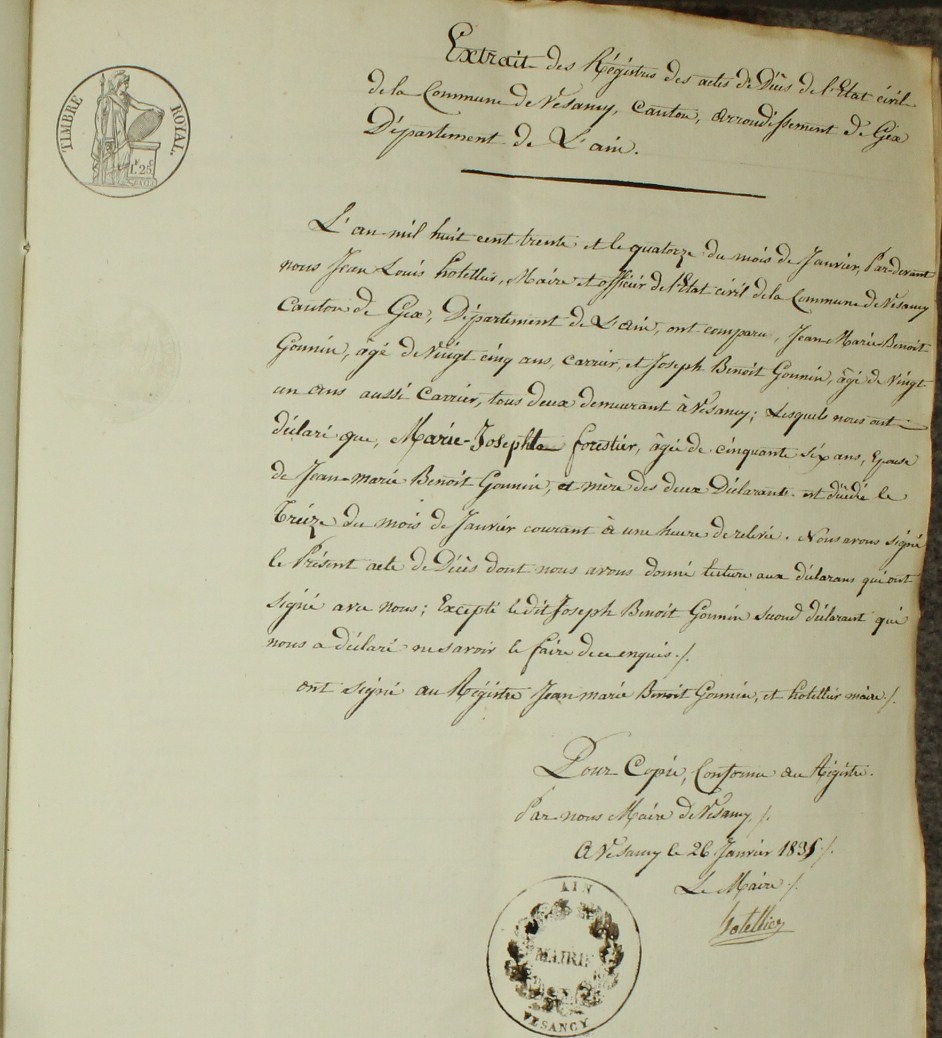 TIMBRE ROYAL.
1F. 25C
Extrait des Régistres des actes de Décès de l'Etat civil
de la Commune de Vesancy, Canton, arrondissement de Gex
Département de L'ain.
L'an mil huit cent trente et le quatorze du mois de Janvier, Par-devant
nous Jean Louis hotellier, Maire et officier de l'Etat civil de la Commune de Vesancy
Canton de Gex, Département de L'ain, ont comparu, Jean-Marie-Benoit-
Gonnin, âgé de Vingt cinq ans, carrier, et Joseph Benoit Gonnin, âgé de Vingt
un ans aussi Carrier, tous deux demeurant à Vesancy; Lesquels nous ont
déclaré que, Marie-Josephte forestier, âgée de cinquante six ans, Epouse
de Jean-marie Benoit Gonnin, et mère des deux Déclarants est décédée le
Treize du mois de Janvier courant à une heure de relevée. Nous avons signé
le Présent acte de Décès dont nous avons donné lecture aux déclarans qui ont
signé avec nous; Excepté le dit Joseph Benoit Gonnin second déclarant qui
nous a déclaré ne savoir le faire de ce enquis./.
ont signé au Régistre Jean marie Benoit Gonnin, et hotellier maire./.
Pour Copie, Conforme au Régistre.
Par nous Maire de Vesancy./.
A Vesancy le 26 Janvier 1835./.
Le Maire./.
hotellier
AIN
MAIRIE
VESANCY